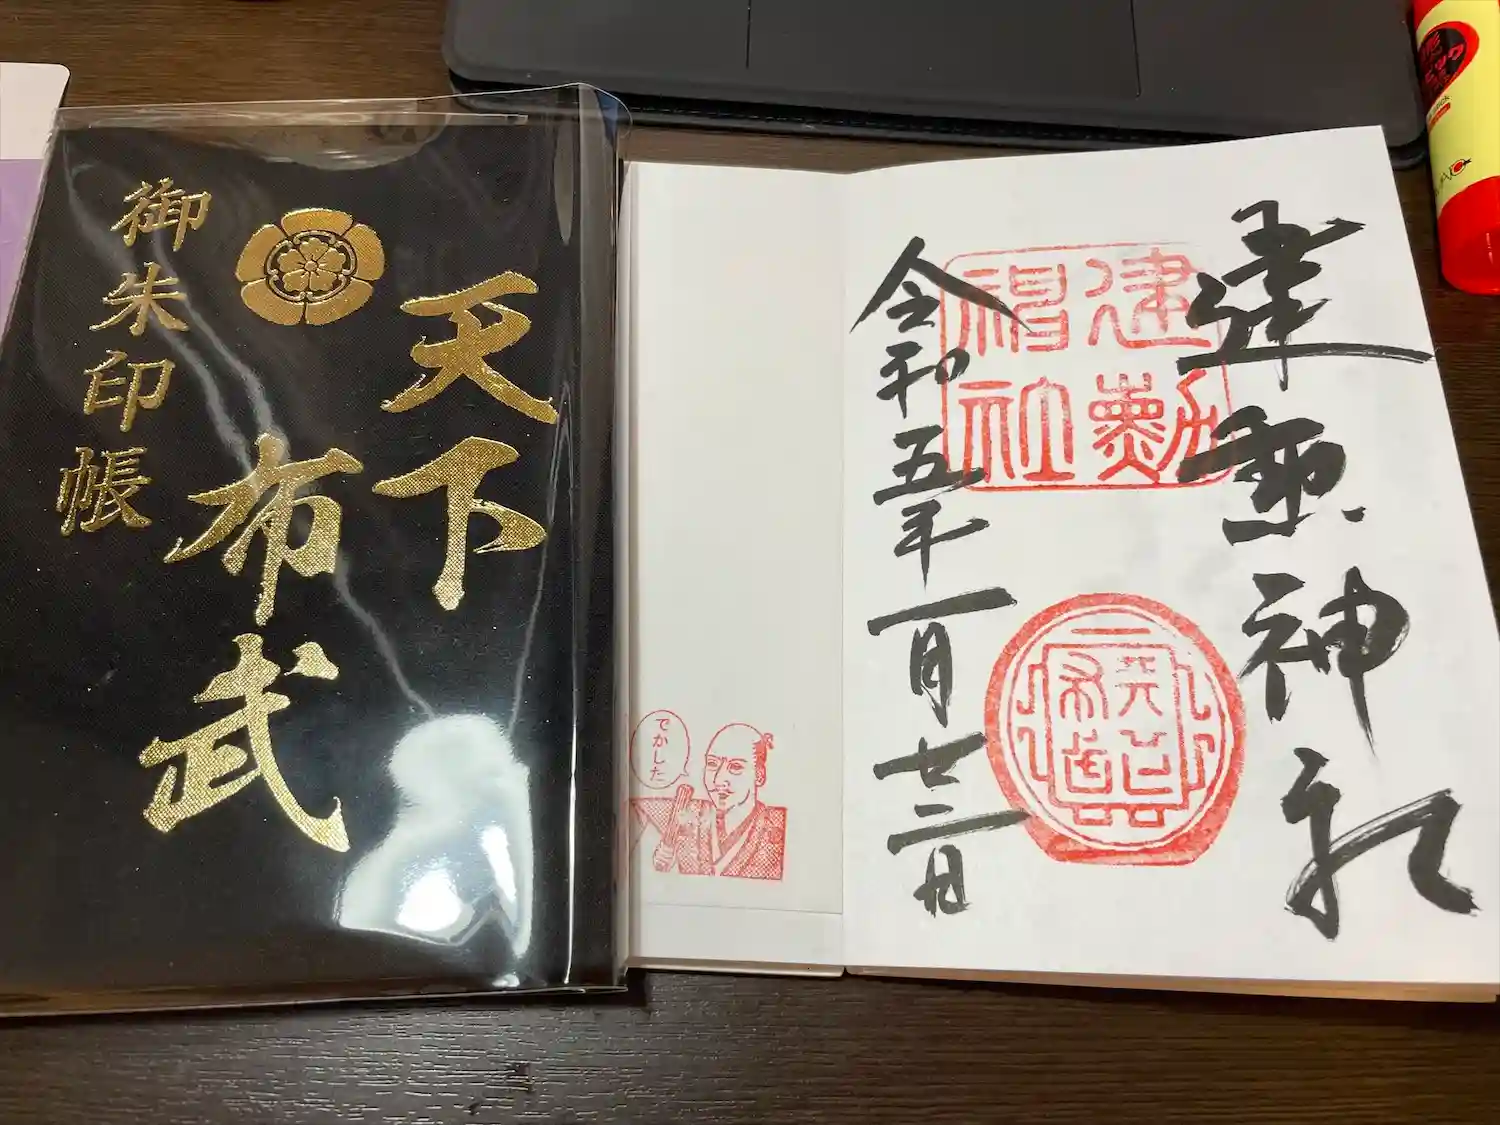 天下
布武
御朱印帳
建勲神社
令和五年一月廿二日
建勲
神社
でかした